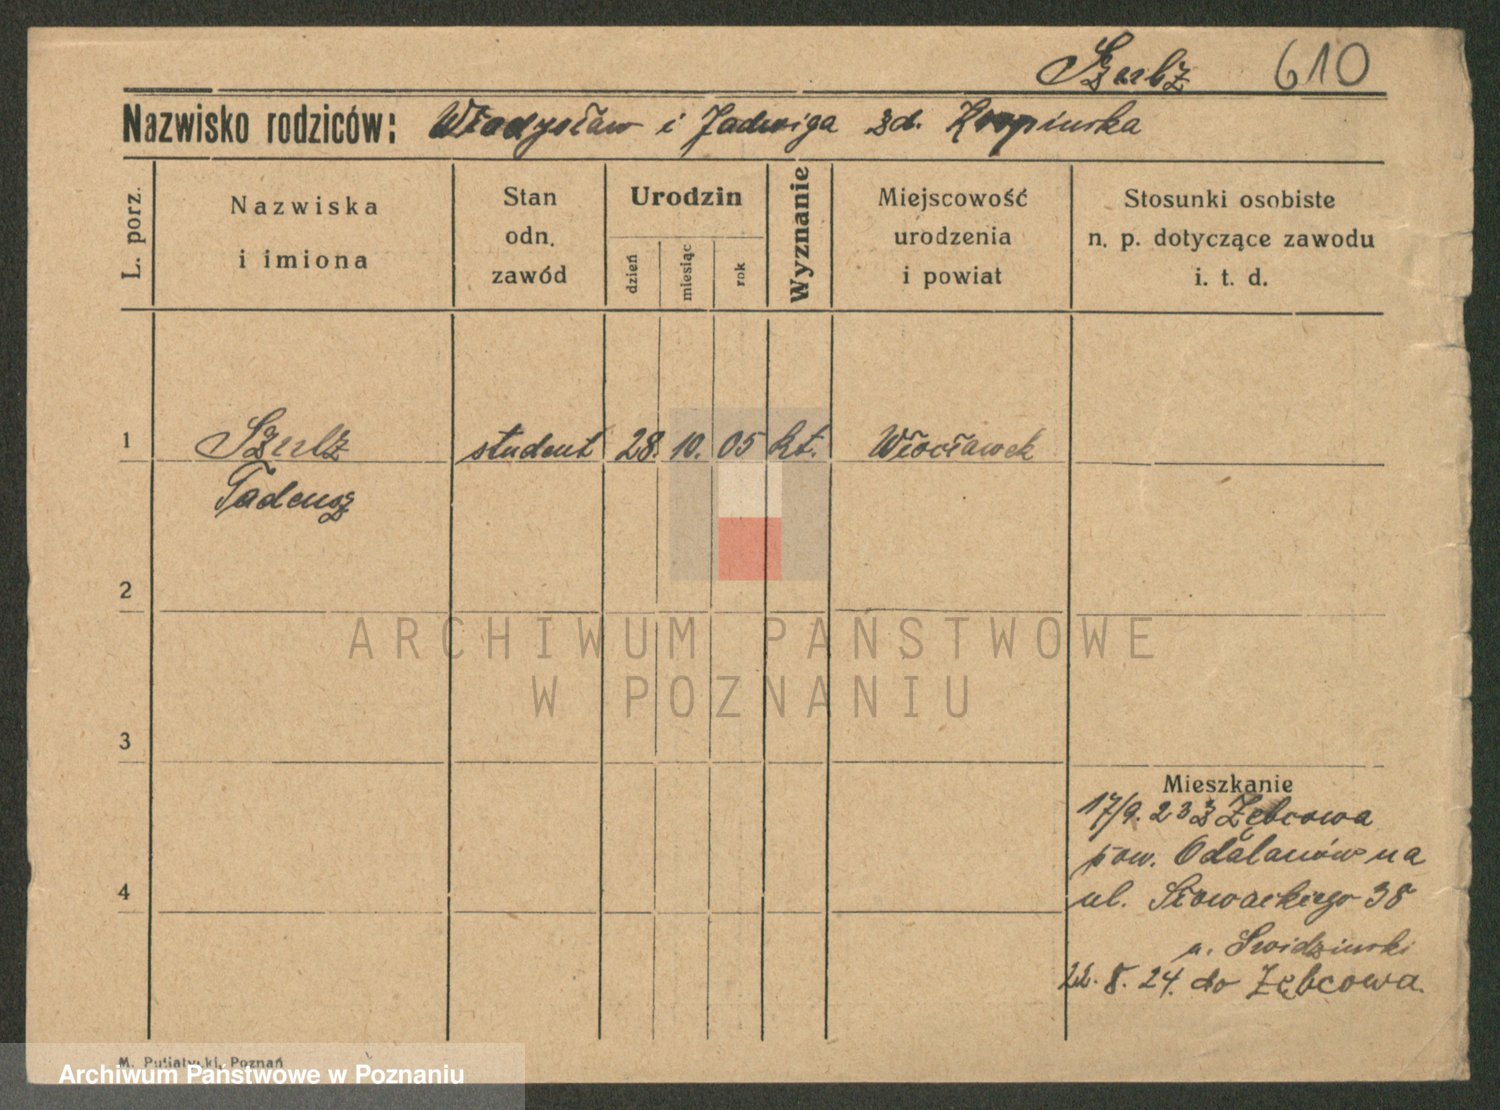 Szulz 610
Nazwisko rodziców: Władysław i Jadwiga zd. Kropinska
L. porz.
Nazwiska
i imiona
Stan
odn.
zawód
Urodzin
dzień
miesiąc
rok
Wyznanie
Miejscowość
urodzenia
i powiat
Stosunki osobiste
n. p. dotyczące zawodu
i. t. d.
1 Szulz student 28. 10. 05 kt. Włocławek
Tadeusz
2
ARCHIWUM PAŃSTWOWE
W POZNANIU
3
Mieszkanie
17/9. 23 z Zębcowa
pow. Odalanów na
4
ul. Słowackiego 38
u. Swidzinski
22. 8. 24. do Zębcowa.
M. Putiatycki, Poznań
Archiwum Państwowe w Poznaniu